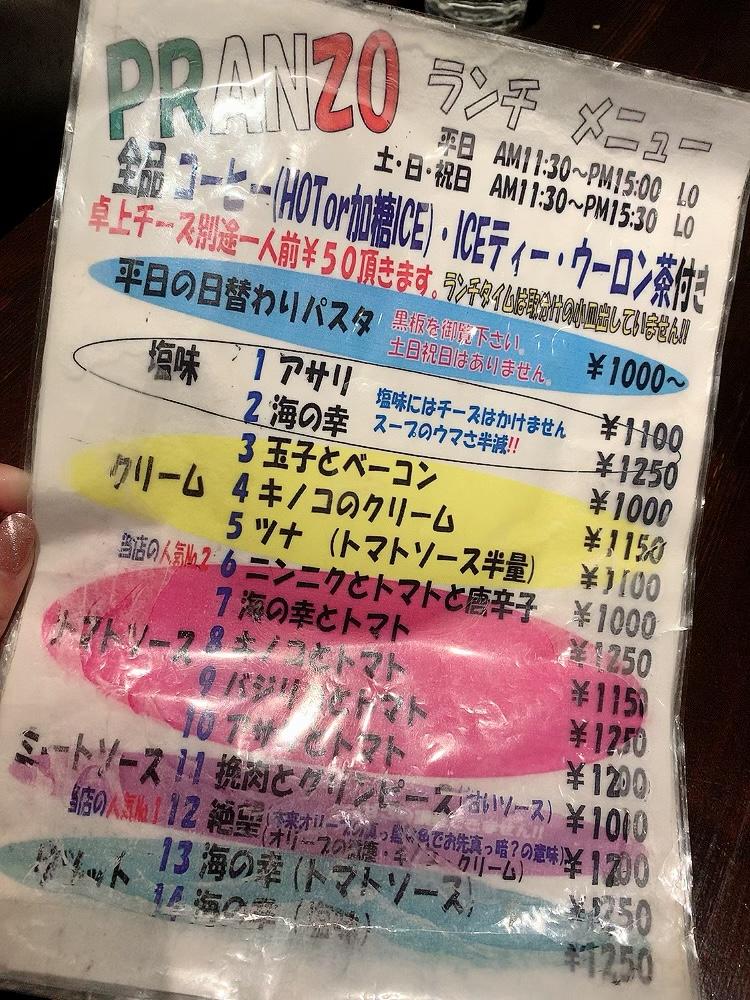 PRANZO ランチ メニュー
平日 AM11:30～PM15:00 LO
土・日・祝日 AM11:30～PM15:30 LO
全品 コーヒー(HOTor加糖ICE)・ICEティー・ウーロン茶付き
卓上チーズ別途一人前¥50頂きます。
ランチタイムは取分けの小皿出していません!!
平日の日替わりパスタ 黒板を御覧下さい。 ¥1000～
土日祝日はありません。
塩味 1 アサリ ¥1100
2 海の幸 ¥1250
塩味にはチーズはかけません
スープのウマさ半減!!
クリーム 3 玉子とベーコン ¥1000
4 キノコのクリーム ¥1150
5 ツナ (トマトソース半量) ¥1100
当店の人気No.2 6 ニンニクとトマトと唐辛子 ¥1000
トマトソース 7 海の幸とトマト ¥1250
8 キノコとトマト ¥1150
9 バジリコとトマト ¥1250
10 アサリとトマト ¥1200
ミートソース 11 挽肉とグリンピース(甘いソース) ¥1000
当店の人気No.1 12 絶望 (本来オリーブの真っ黒い色でお先真っ暗?の意味) ¥1200
(オリーブの塩漬・キノコ・クリーム)
13 海の幸 (トマトソース) ¥1250
14 海の幸 (塩味) ¥1250